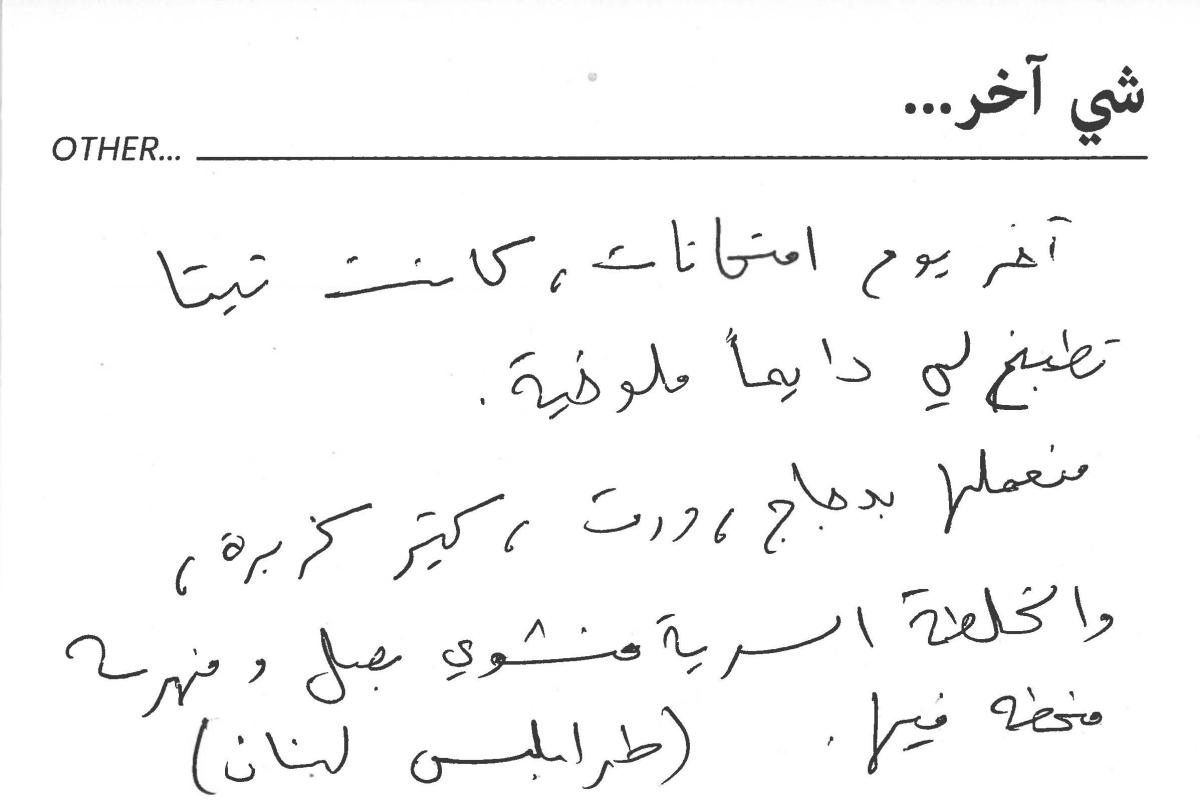 شي آخر...
OTHER...
آخر يوم امتحانات، كانت تيتا
تطبخ لي دايماً ملوخية.
منعملها بدجاج، ورت، كتير كزبرة،
والخلطة السرية منشوي بصل و منهرسه
منحطه فيها. (طرابلس لبنان)